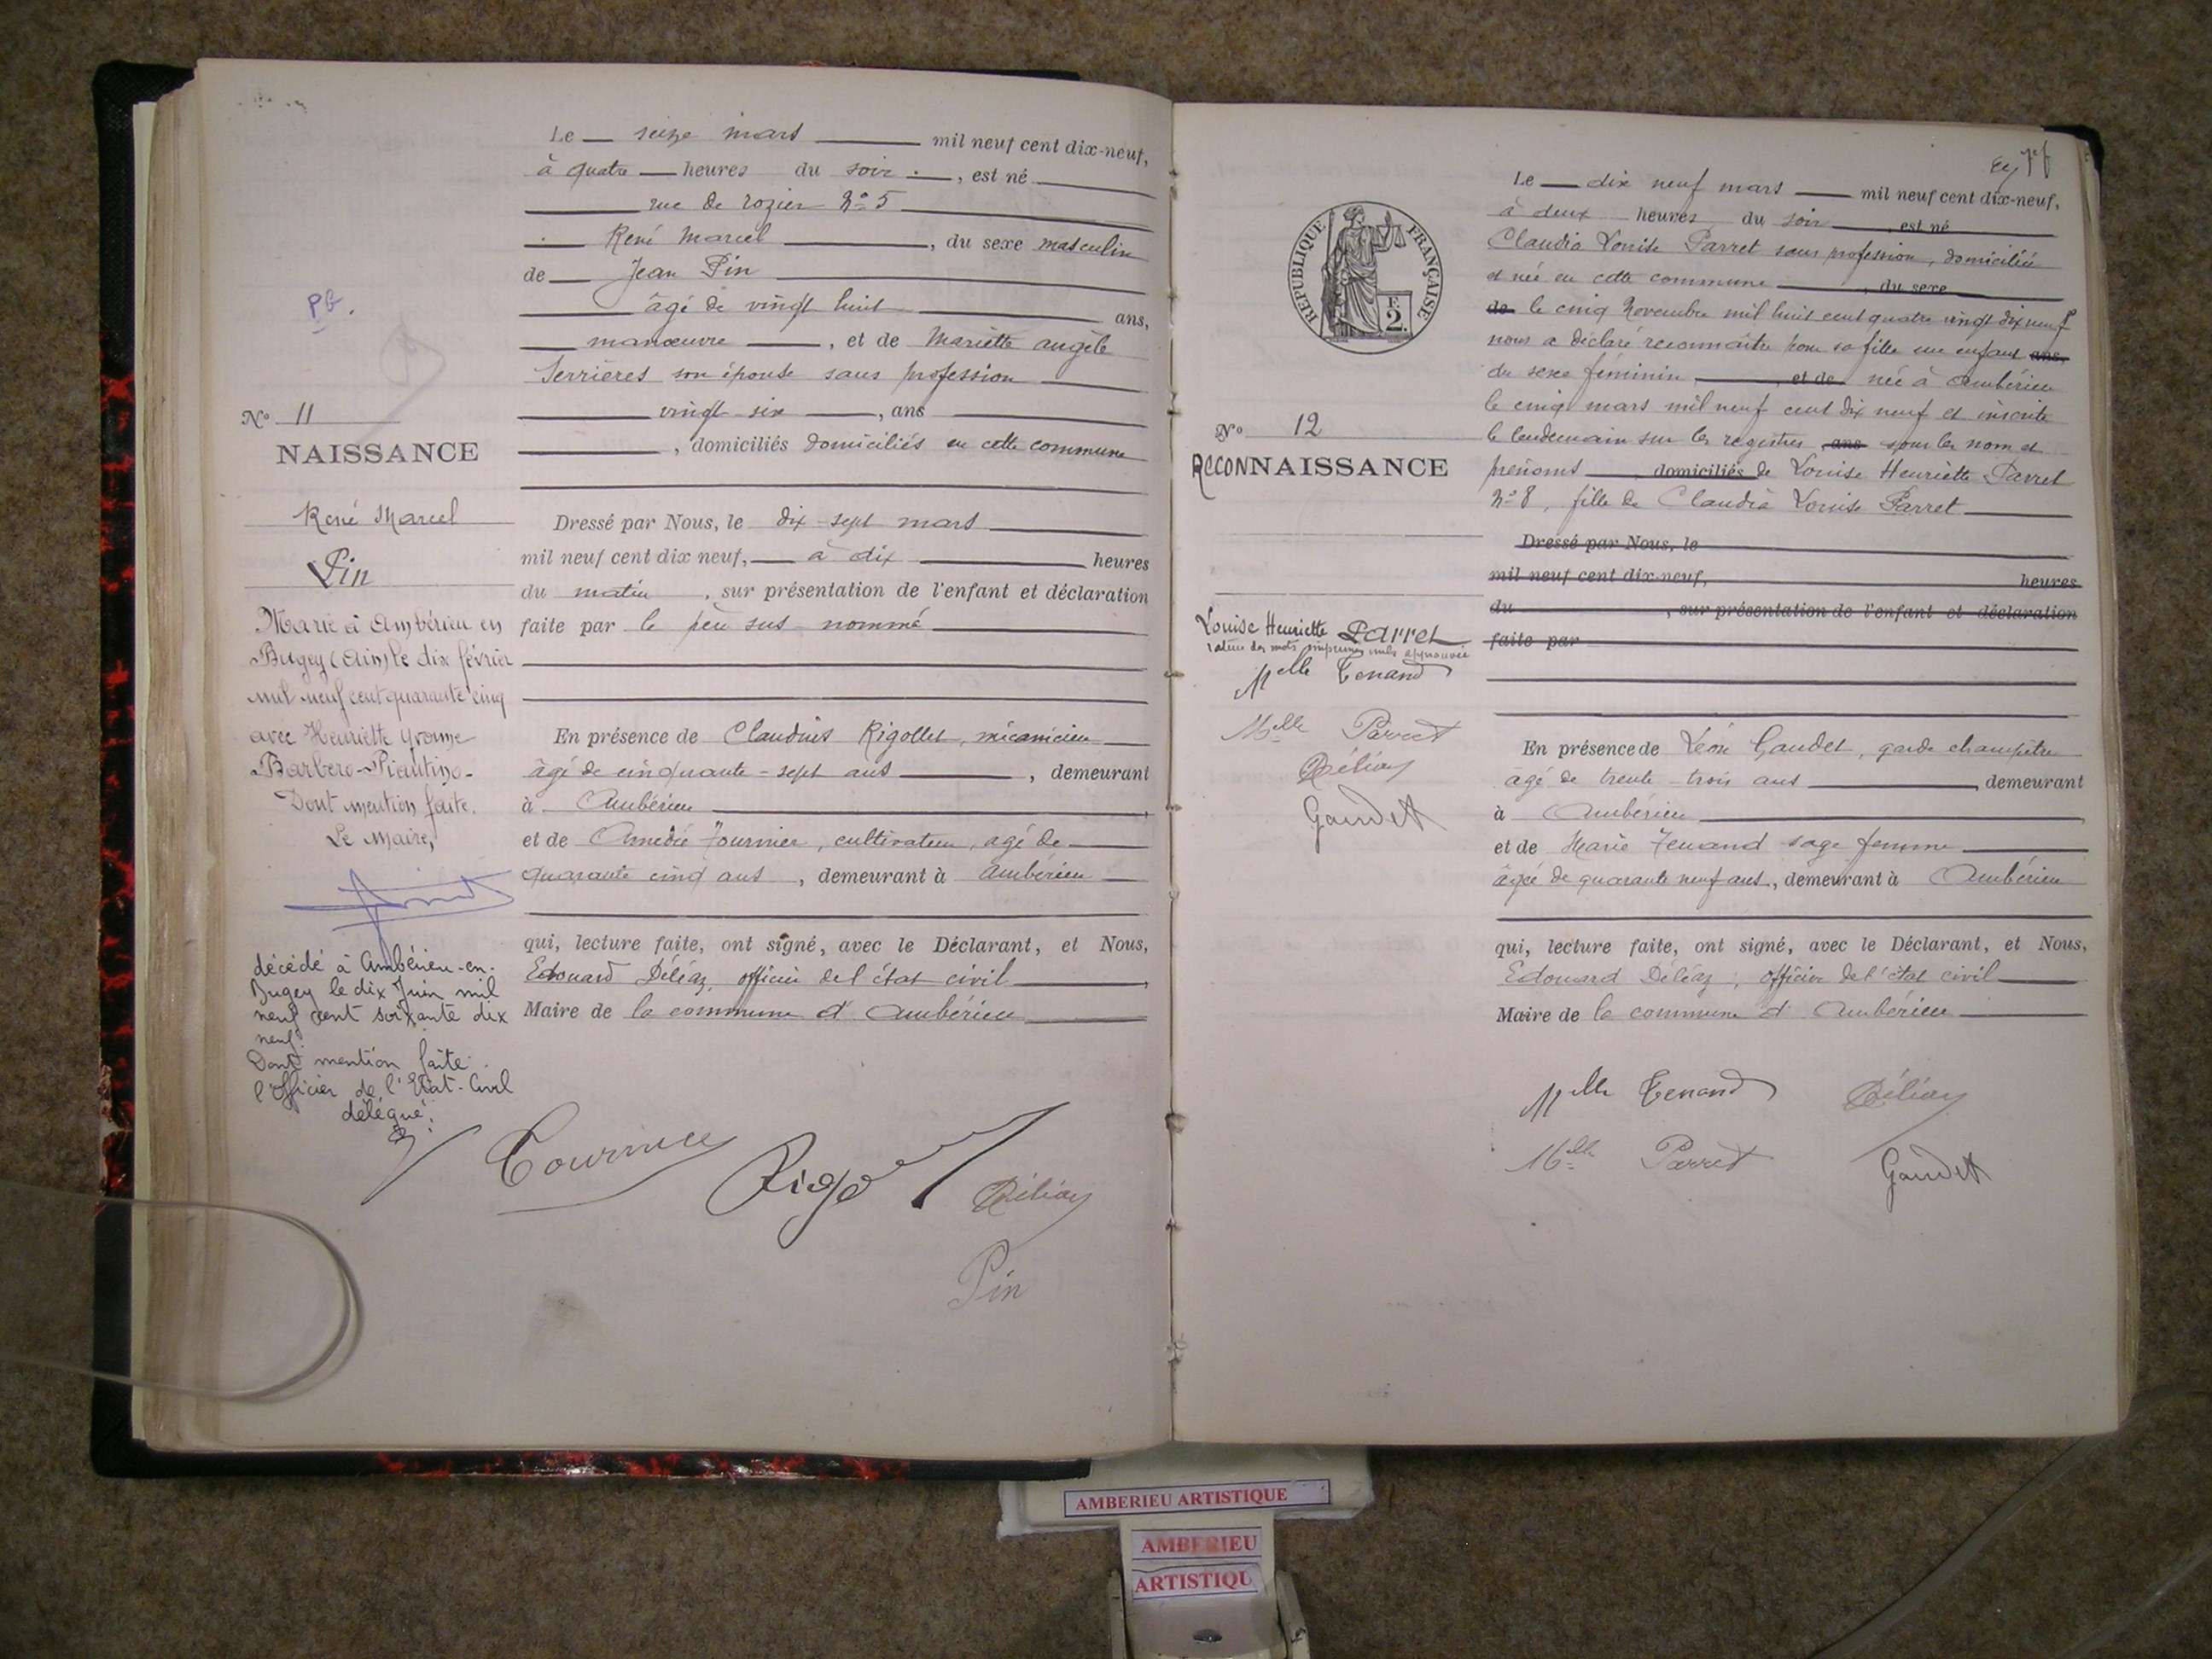 Le seize mars mil neuf cent dix-neuf,
à quatre heures du soir, est né
rue de rozier No 5
René Marcel, du sexe masculin
de Jean Pin
âgé de vingt huit ans,
manœuvre, et de Mariette angèle
Serrières son épouse sans profession
vingt six, ans
, domiciliés domiciliés en cette commune
PG.
No 11
NAISSANCE
René Marcel
Pin
Marié à Ambérieu en
Bugey (Ain) le dix février
mil neuf cent quarante cinq
avec Henriette Yvonne
Barbero-Piantino.
Dont mention faite.
Le Maire,
décédé à Ambérieu-en-
Bugey le dix Juin mil
neuf cent soixante dix
neuf.
Dont mention faite.
l'Officier de l'Etat-Civil
délégué:
Dressé par Nous, le dix-sept mars
mil neuf cent dix neuf, à dix heures
du matin, sur présentation de l'enfant et déclaration
faite par le père sus-nommé
En présence de Claudius Rigollet, mécanicien
âgé de cinquante-sept ans, demeurant
à Ambérieu
et de Amédée Tournier, cultivateur, agé de
quarante cinq ans, demeurant à Ambérieu
qui, lecture faite, ont signé, avec le Déclarant, et Nous,
Edouard Déléaz, officier de l'état civil,
Maire de la commune d'Ambérieu
Tournier
Déléaz
Pin
REPUBLIQUE FRANÇAISE
F.
2.
No 12
RECONNAISSANCE
Louise Henriette Parret
Melle Tenand
Melle Parret
Déléaz
Gaudet
Le dix neuf mars mil neuf cent dix-neuf,
à deux heures du soir, est né
Claudia Louise Parret sans profession, domiciliée
et née en cette commune, du sexe
de le cinq Novembre mil huit cent quatre vingt dix neuf
nous a déclaré reconnaître pour sa fille une enfant ans,
du sexe féminin, et de née à Ambérieu
le cinq mars mil neuf cent dix neuf et inscrite
le lendemain sur les registres, ans sous les nom et
prénoms, domiciliés de Louise Henriette Parret
No 8, fille de Claudia Louise Parret
Dressé par Nous, le
mil neuf cent dix-neuf, heures
du, sur présentation de l'enfant et déclaration
faite par
En présence de Léon Gaudet, garde champêtre
âgé de trente-trois ans, demeurant
à Ambérieu
et de Marie Tenand sage femme
âgée de quarante neuf ans, demeurant à Ambérieu
qui, lecture faite, ont signé, avec le Déclarant, et Nous,
Edouard Déléaz, officier de l'état civil
Maire de la commune d'Ambérieu
Melle Tenand Déléaz
Melle Parret Gaudet
AMBERIEU ARTISTIQUE
AMBERIEU
ARTISTIQU